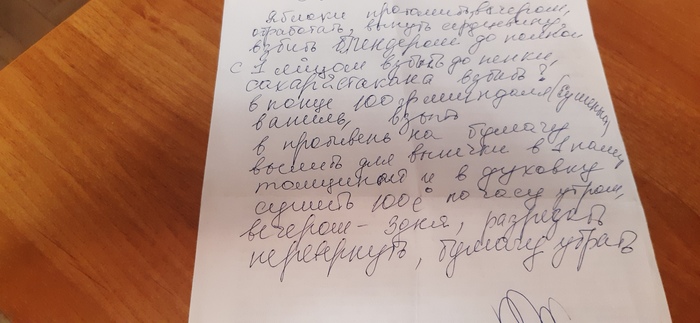 Яблоки протомить вечером,
отработать, вынуть сердцевину,
взбить блендером до полной
с 1 яйцом взбить до пенки,
сахара стакана взбить?
в конце 100гр миндаля (сушеный
ваниль, взбить
в противень на бумагу
вылить для выпечки в 1 палец
толщиной и в духовку
сушить 100с° по часу утром,
вечером - 3дня, разрезать
перевернуть, бумагу убрать